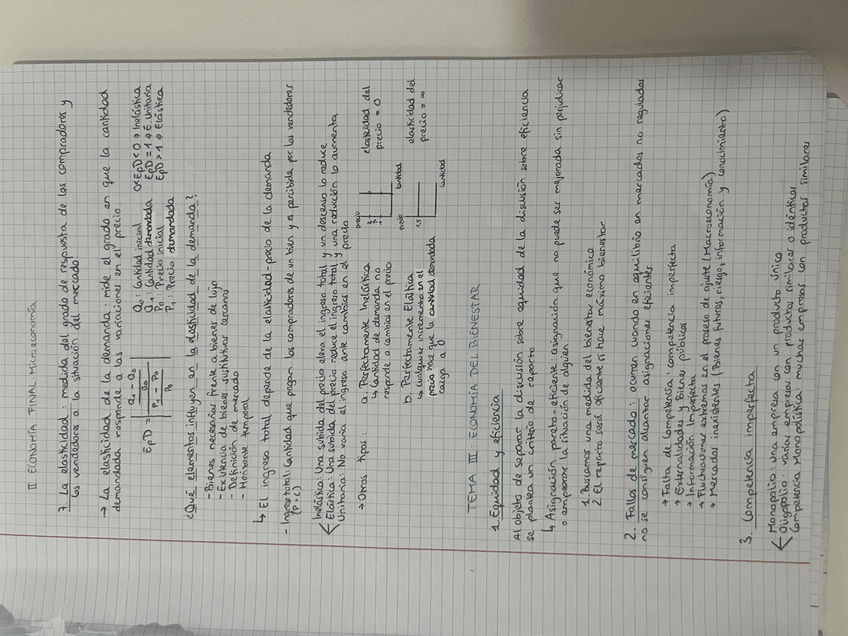 II. ECONOMÍA FINAL Microeconomía
7. La elasticidad: medida del grado de respuesta de los compradores y
los vendedores a la situación del mercado
→ La elasticidad de la demanda: mide el grado en que la cantidad
demandada responde a las variaciones en el precio.
EpD = | (Q1 - Q0 / Q0) / (P1 - P0 / P0) |
Q0: Cantidad inicial
Q1: Cantidad demandada
P0: Precio inicial
P1: Precio demandada
0<EpD<0 → Inelástica
EpD = 1 → E. Unitaria
EpD > 1 → Elástica
¿Qué elementos influyen en la elasticidad de la demanda?
- Bienes necesarios frente a bienes de lujo
- Existencia de bienes sustitutivos cercanos
- Definición de mercado
- Horizonte temporal
↳ El ingreso total depende de la elasticidad-precio de la demanda
- Ingreso total: Cantidad que pagan los compradores de un bien y es percibida por los vendedores
(P·C)
Inelástica: Una subida del precio eleva el ingreso total y un descenso lo reduce
Elástica: Una subida del precio reduce el ingreso total y una reducción lo aumenta
Unitaria: No varía el ingreso ante cambios en el precio
→ Otros tipos
a. Perfectamente Inelástica
↳ Cantidad de demanda no
responde a cambios en el precio
precio
cantidad
elasticidad del
precio = 0
b. Perfectamente Elástica
↳ Cualquier incremento en el
precio hace que la cantidad demandada
caiga a 0
precio
cantidad
elasticidad del
precio = ∞
TEMA III: ECONOMÍA DEL BIENESTAR
1. Equidad y eficiencia
Al objeto de separar la discusión sobre equidad de la discusión sobre eficiencia
se plantea un criterio de reparto
↳ Asignación pareto-eficiente: asignación que no puede ser mejorada sin perjudicar
o empeorar la situación de alguien
1. Buscamos una medida del bienestar económico
2. El reparto será eficiente si hace máximo bienestar
2. Fallos de mercado: ocurren cuando en equilibrio en mercados no regulados
no se consiguen alcanzar asignaciones eficientes
→ Falta de Competencia: competencia imperfecta
→ Externalidades y Bienes públicos
→ Información Imperfecta
→ Fluctuaciones extremas en el proceso de ajuste (Macroeconomía)
→ Mercados inexistentes (Bienes futuros, riesgo, información y conocimiento)
3. Competencia imperfecta
Monopolio: una empresa con un producto único
Oligopolio: varias empresas con productos similares o idénticos
Competencia Monopolística: muchas empresas con productos similares